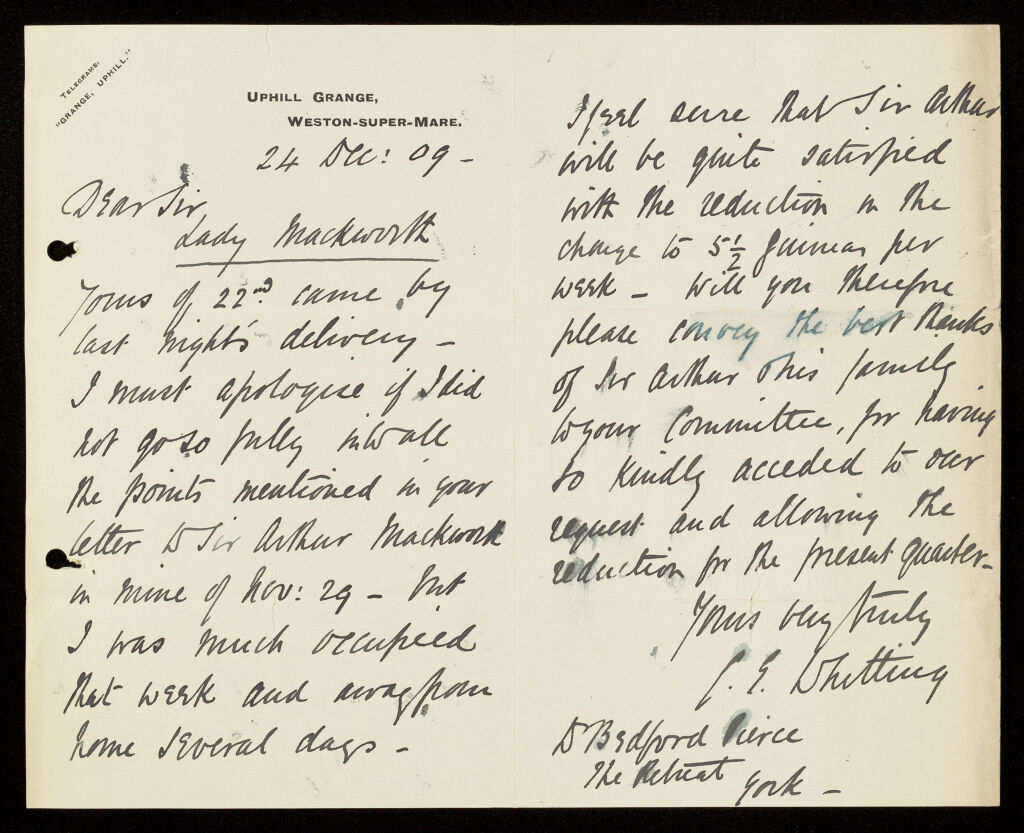 TELEGRAMS:
"GRANGE, UPHILL."
UPHILL GRANGE,
WESTON-SUPER-MARE.
24 Dec: 09 -
Dear Sir,
Lady Mackworth
Yours of 22nd. came by
last night's delivery -
I must apologise if I did
not go so fully into all
the points mentioned in your
letter to Sir Arthur Mackworth
in mine of Nov: 29 - but
I was much occupied
that week and away from
home several days -
I feel sure that Sir Arthur
will be quite satisfied
with the reduction in the
charge to 5½ guineas per
week - will you therefore
please convey the best thanks
of Sir Arthur & his family
to your Committee, for having
so kindly acceded to our
request and allowing the
reduction for the present quarter -
Yours very truly
E. Whitting
Dr Bedford Pierce
The Retreat
York -